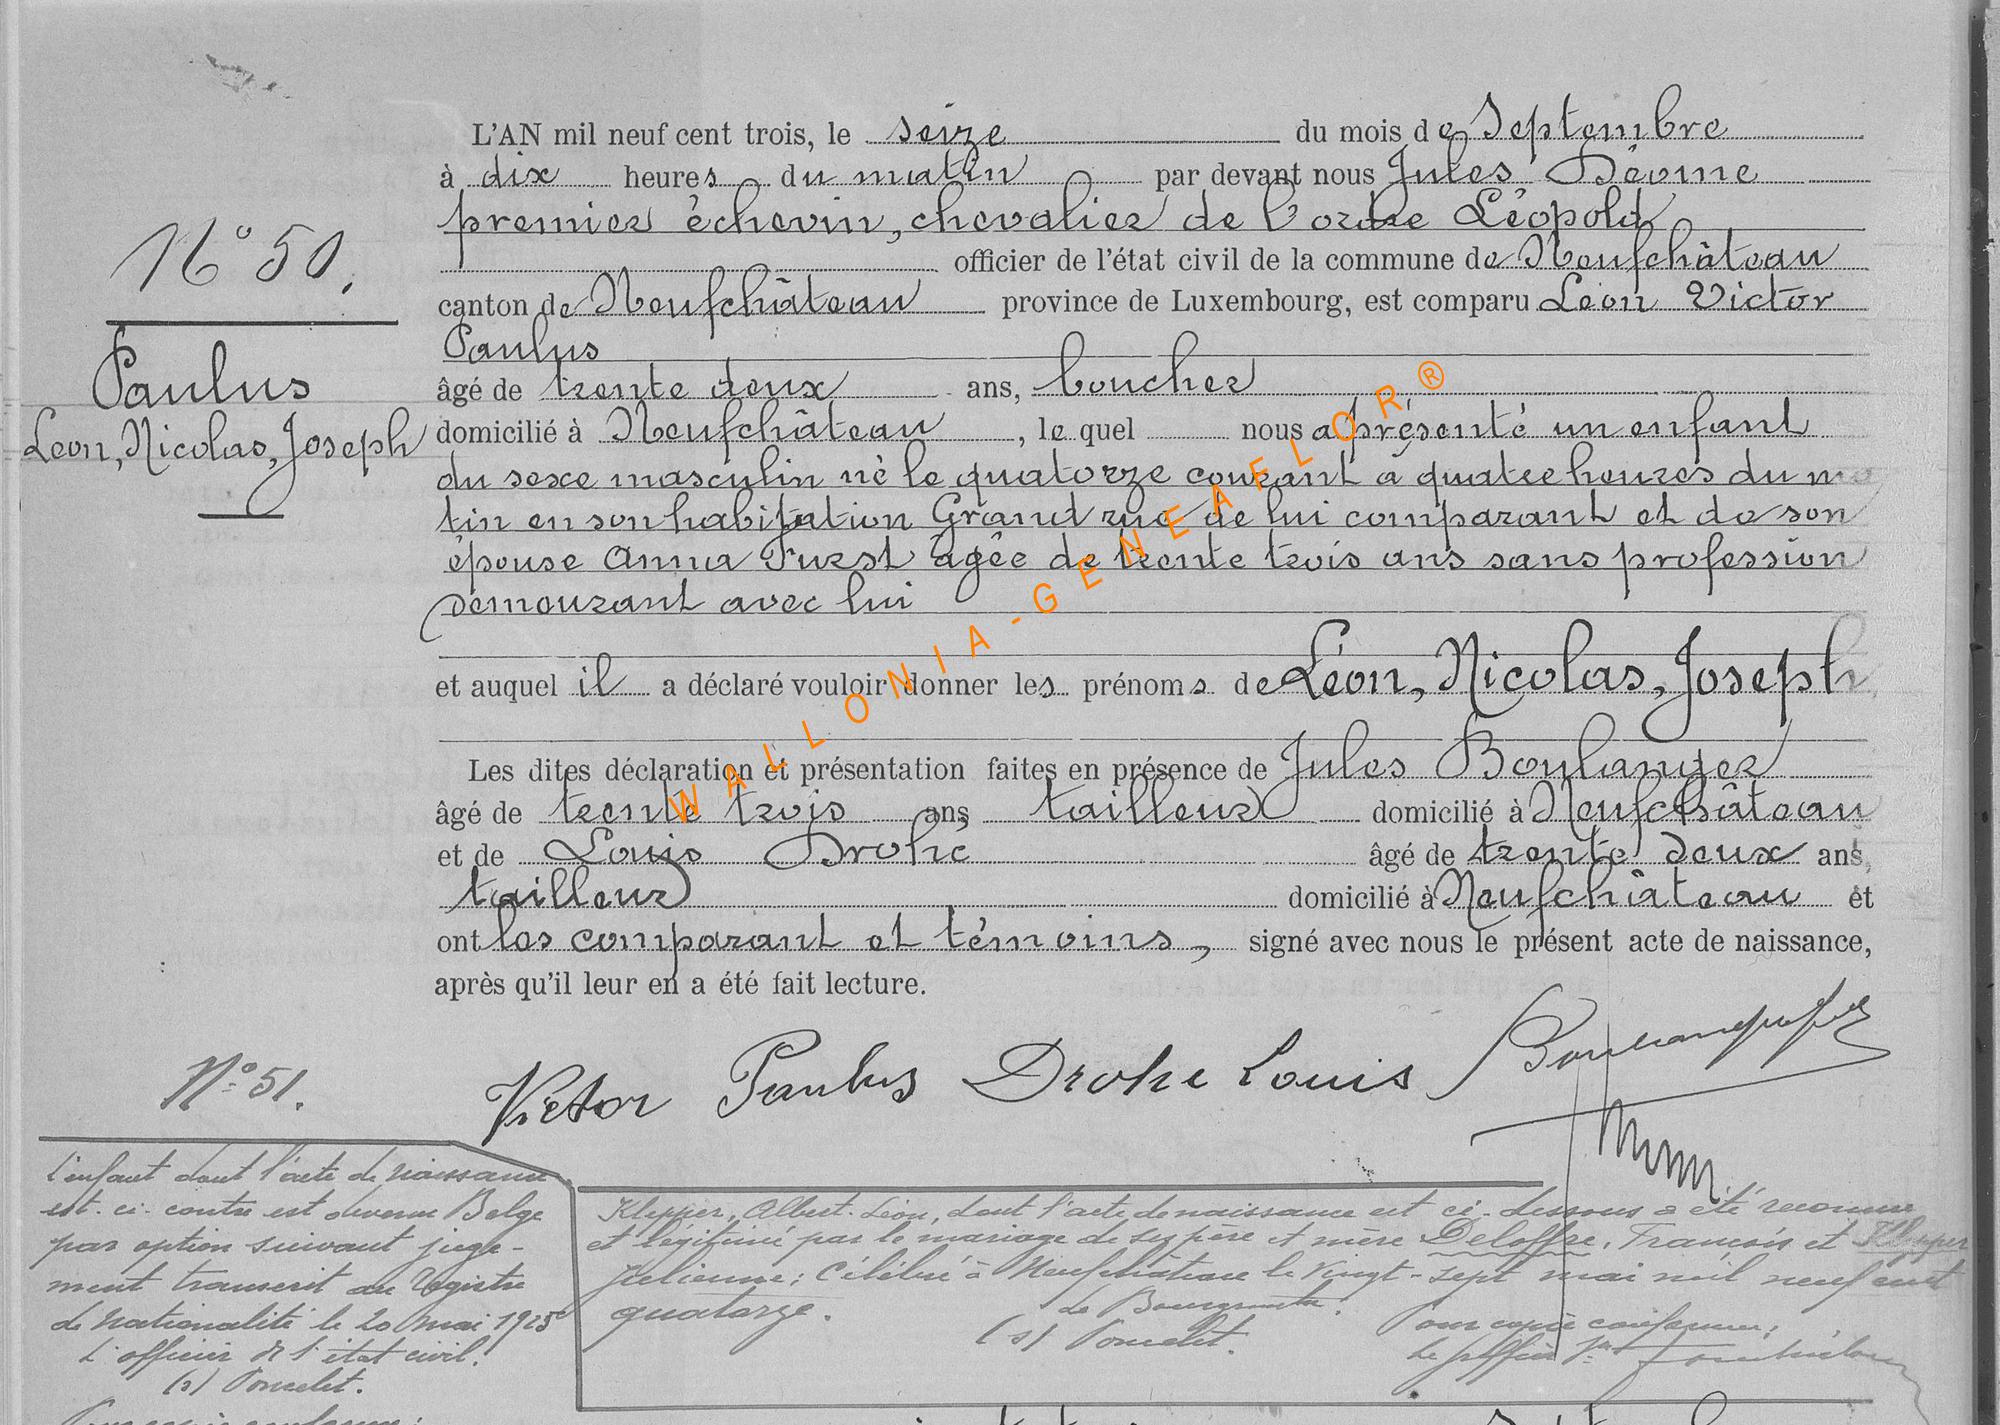 N° 50.
Paulus
Léon, Nicolas, Joseph
L'AN mil neuf cent trois, le seize du mois de Septembre
à dix heures du matin par devant nous Jules Déome
premier échevin, chevalier de l'ordre Léopold
officier de l'état civil de la commune de Neufchâteau
canton de Neufchâteau province de Luxembourg, est comparu Léon Victor
Paulus
âgé de trente deux ans, boucher
domicilié à Neufchâteau, lequel nous a présenté un enfant
du sexe masculin né le quatorze courant à quatre heures du ma
tin en son habitation Grand rue de lui comparant et de son
épouse Anna Furst âgée de trente trois ans sans profession
demeurant avec lui
et auquel il a déclaré vouloir donner les prénoms de Léon, Nicolas, Joseph,
Les dites déclaration et présentation faites en présence de Jules Boulanger
âgé de trente trois ans, tailleur domicilié à Neufchâteau
et de Louis Drohé âgé de trente deux ans,
tailleur domicilié à Neufchâteau et
ont les comparant et témoins, signé avec nous le présent acte de naissance,
après qu'il leur en a été fait lecture.
Victor Paulus Drohe Louis
WALLONIA-GENEAFLOR®
N° 51.
L'enfant dont l'acte de naissance
est ci-contre est devenu Belge
par option suivant juge-
ment transcrit au Registre
de Nationalité le 20 mai 1925
L'officier de l'état civil.
(s) Poncelet.
Pour copie conforme:
Klepper, Albert-Léon, dont l'acte de naissance est ci-dessous a été reconnu
et légitimé par le mariage de ses père et mère Deloffre, François et Klepper
Julienne; célébré à Neufchâteau le vingt-sept mai mil neuf cent
quatorze.
Le Bourgmestre.
(s) Poncelet.
Pour copie conforme:
Le greffier